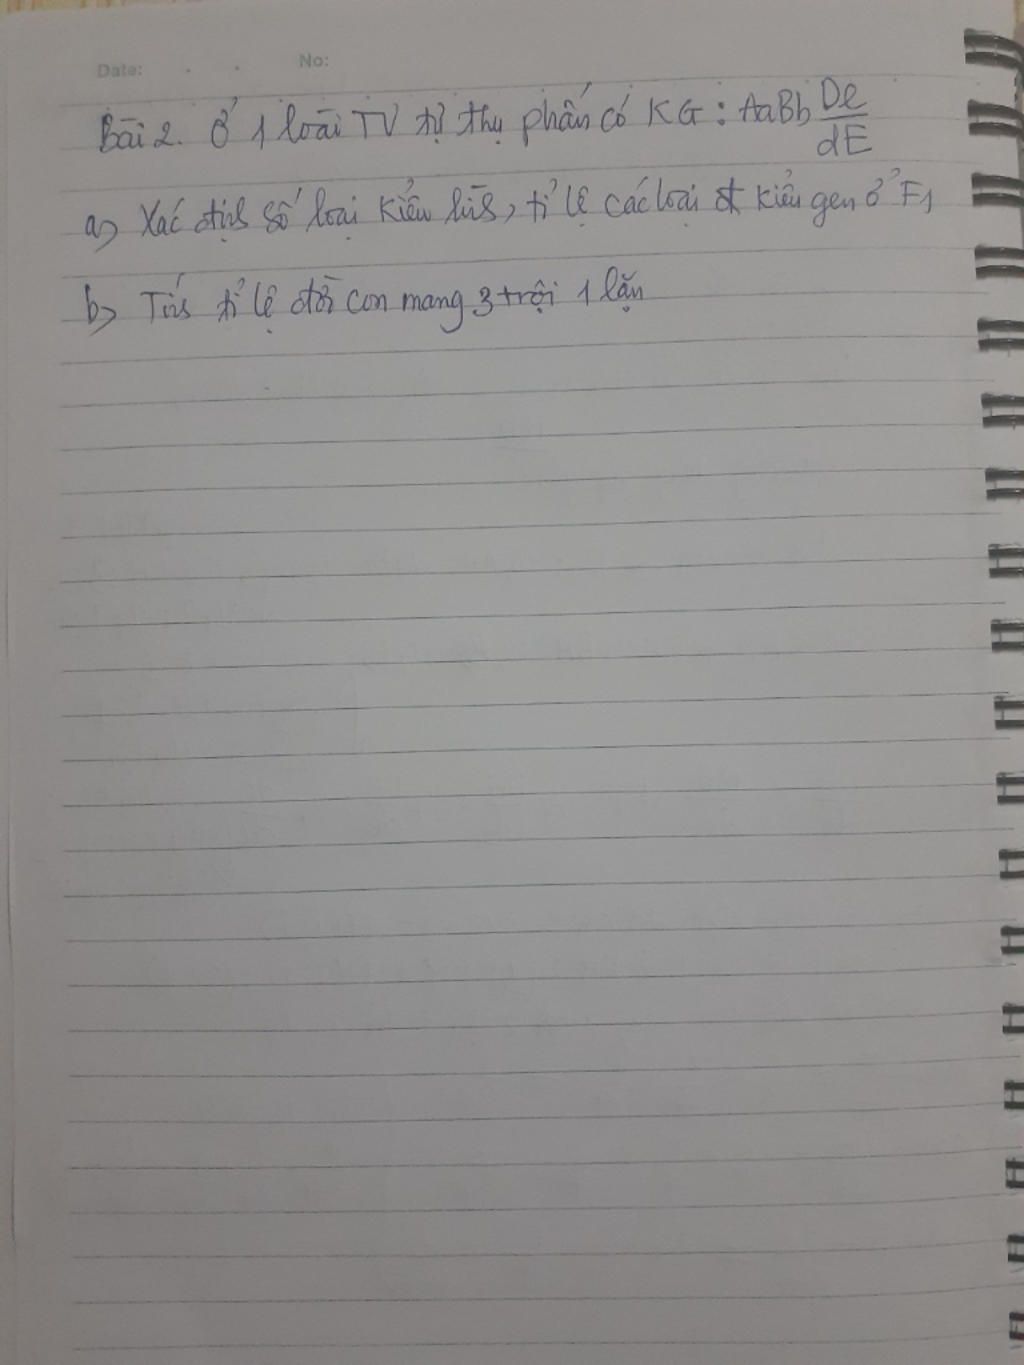 Date: . . No:
Bài 2. Ở 1 loài TV tự thụ phấn có KG: AaBb De/dE
a> Xác định số loại kiểu hình, tỉ lệ các loại kiểu gen ở F1
b> Tính tỉ lệ đời con mang 3 trội 1 lặn